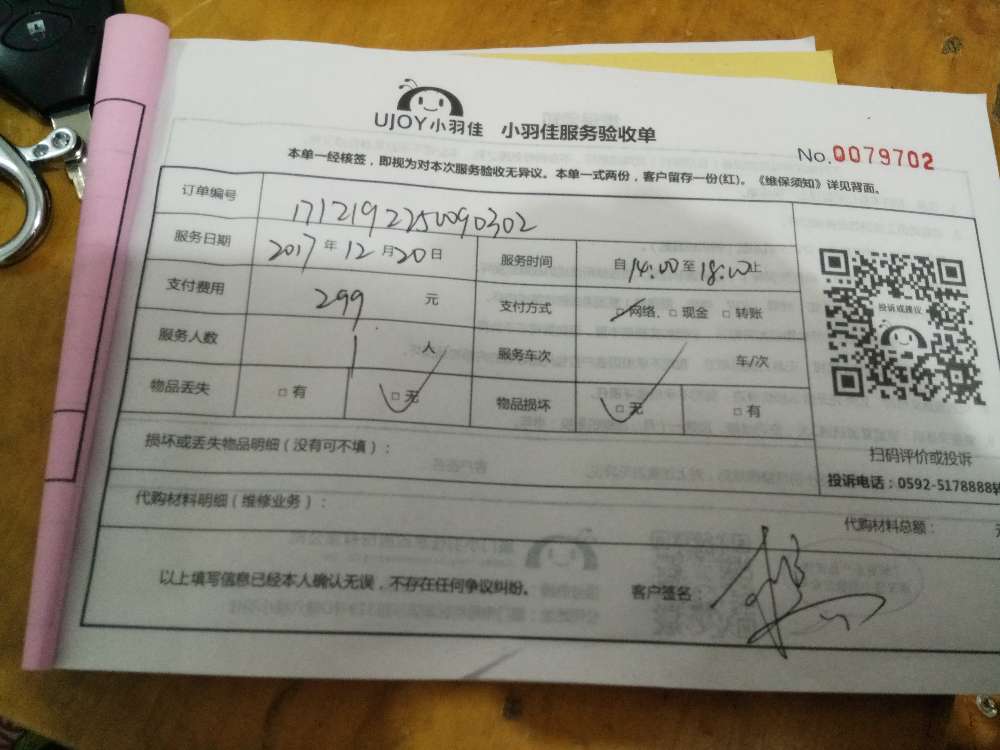 UJOY小羽佳 小羽佳服务验收单
No.0079702
本单一经核签，即视为对本次服务验收无异议。本单一式两份，客户留存一份(红)。《维保须知》详见背面。
订单编号 1712192250090302
服务日期 2017年12月20日 服务时间 自14:00至18:00止
支付费用 299 元 支付方式 □网络、□现金 □转账
服务人数 1 人 服务车次 车/次
物品丢失 □有 □无 物品损坏 □无 □有
投诉或建议
扫码评价或投诉
投诉电话：0592-5178888转
损坏或丢失物品明细（没有可不填）：
代购材料明细（维修业务）：
代购材料总额：
以上填写信息已经本人确认无误，不存在任何争议纠纷。 客户签名：